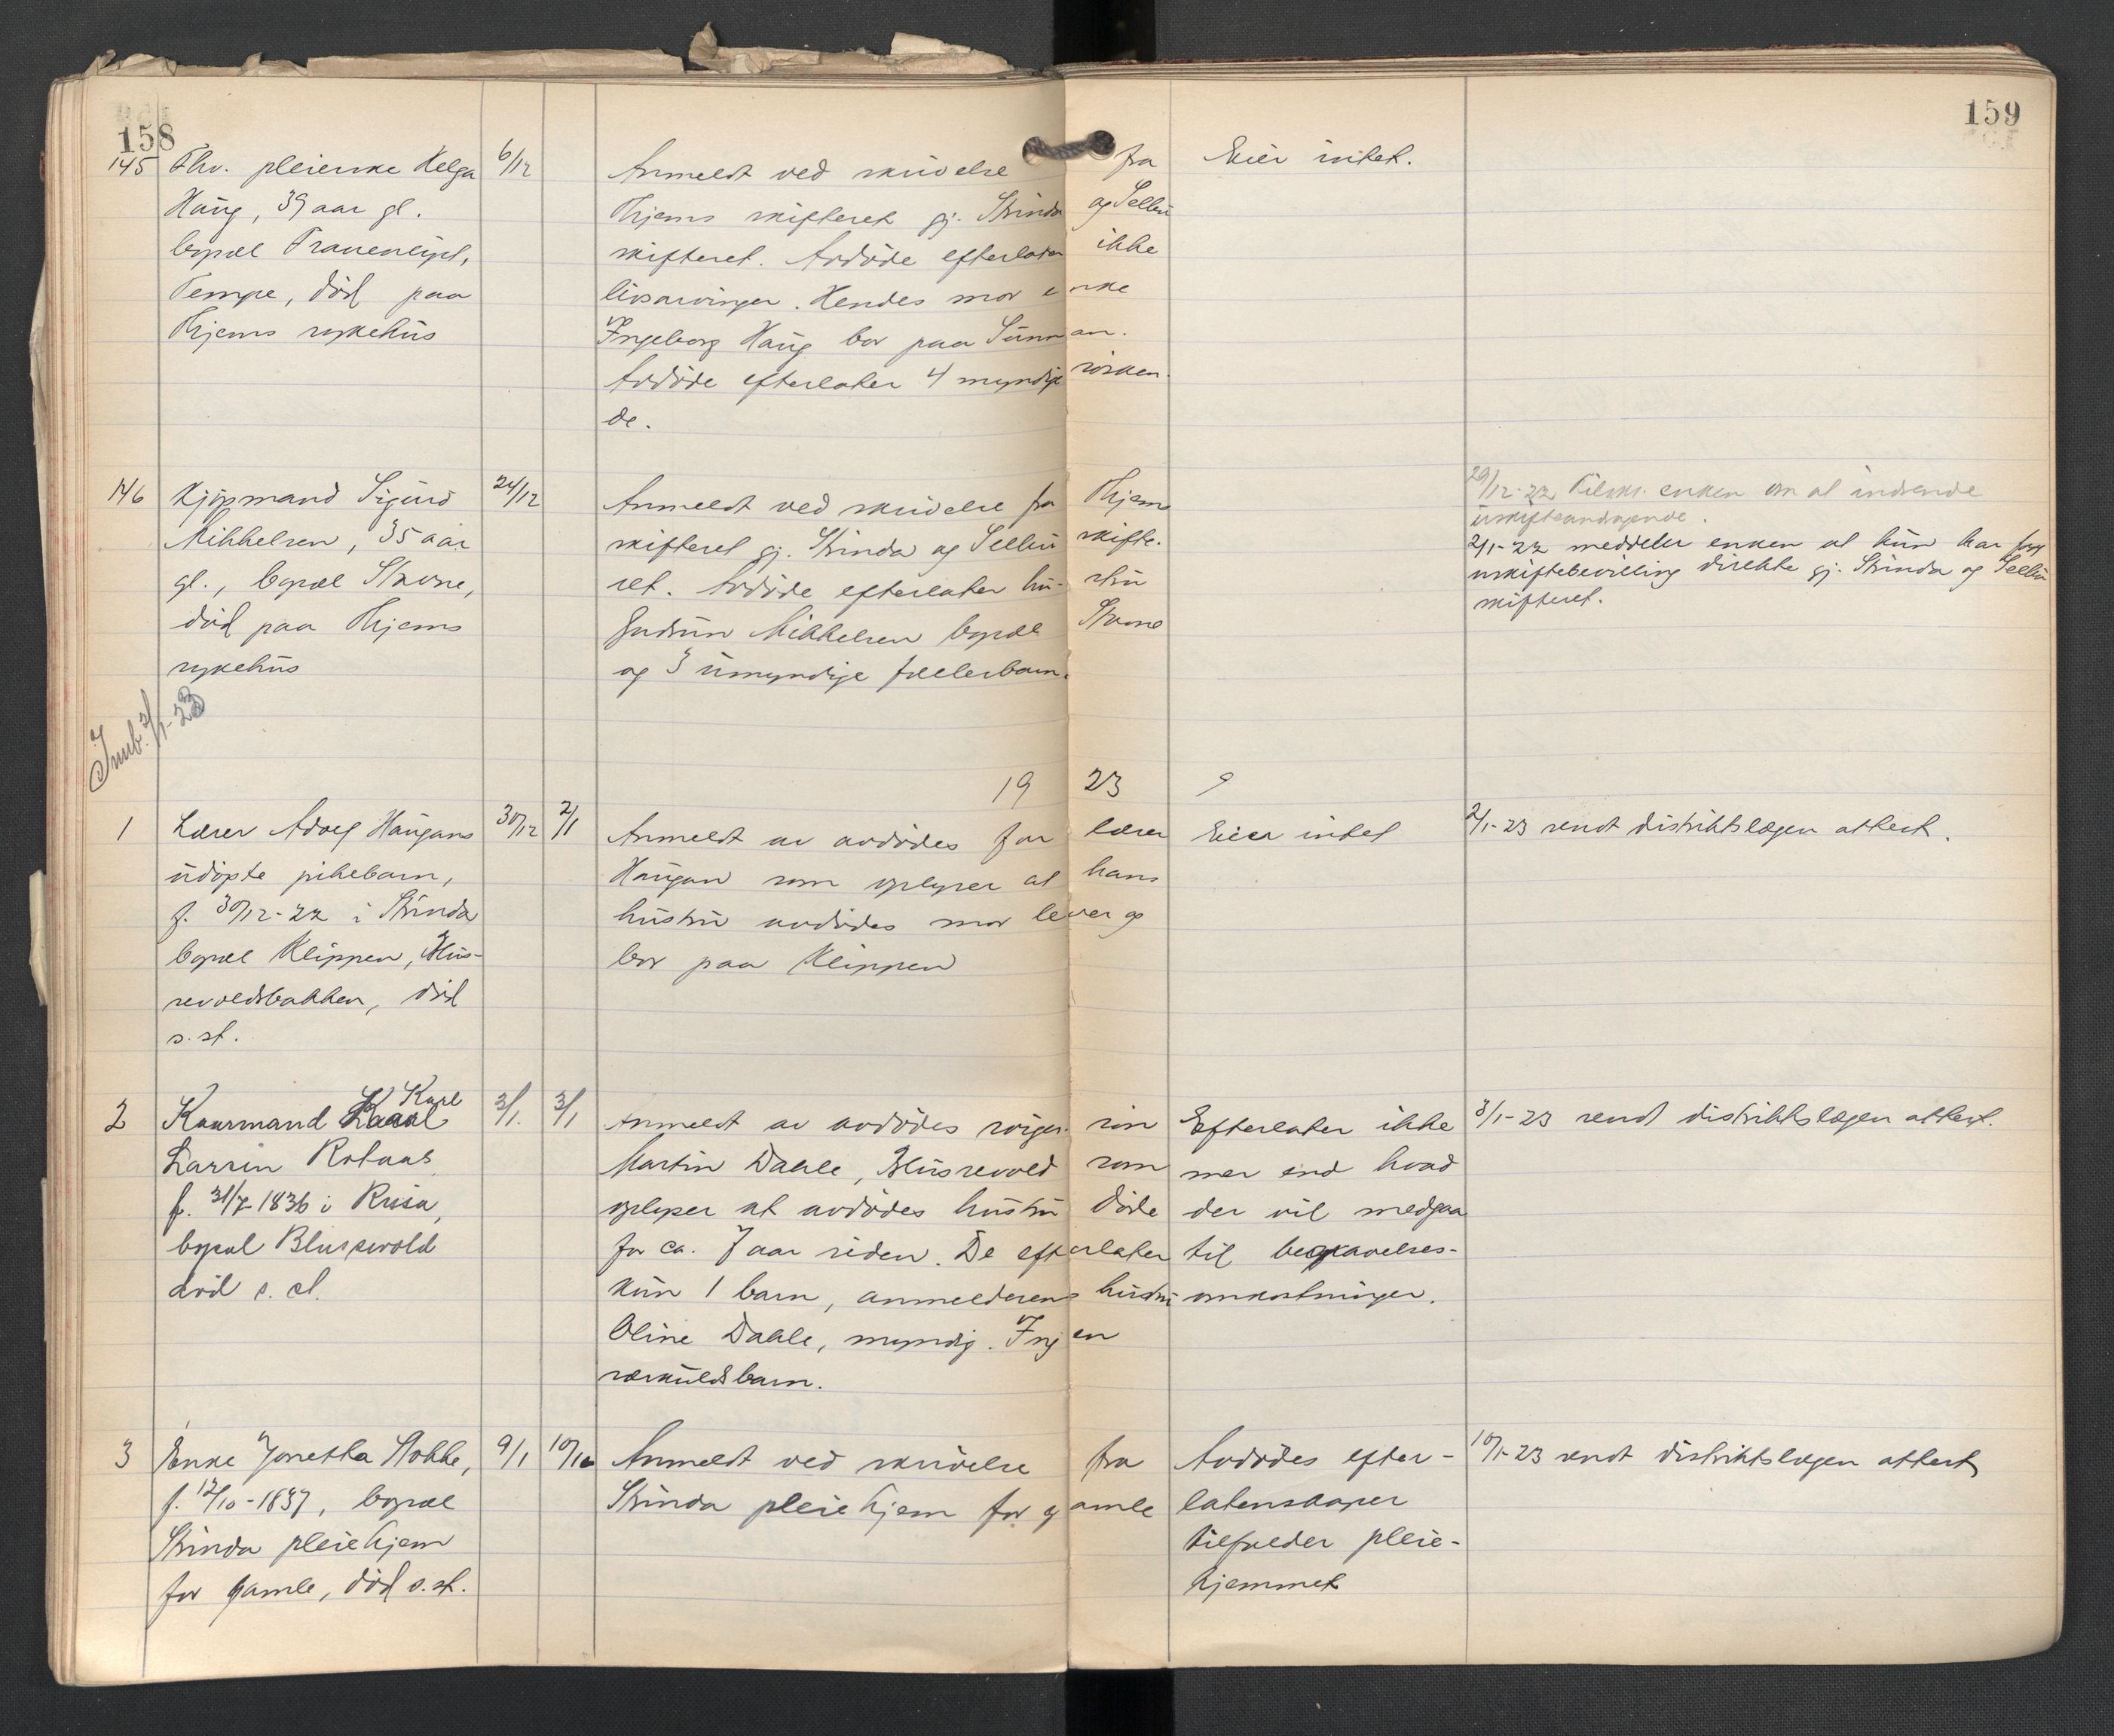 158
159
145 Fhv. pleierske Helga 6/12 Anmeldt ved skrivelse fra Eier intet.
Haug, 39 aar gl. Thjems skifteret gj. Strinda og Selbu
bopæl Trauenlyst, skifteret. Avdøde efterlater ikke
Tempe, død paa livsarvinger. Hendes mor enke
Thjems sykehus Ingeborg Haug bor paa Sunnan.
Avdøde efterlater 4 myndige søsken.
de.
146 Kjøpmand Sigurd 24/12 Anmeldt ved skrivelse fra Thjems 29/12-22 Tilskr. enken om at indsende
Mikkelsen, 35 aar skifteret gj. Strinda og Selbu skifte- uskifteandragende.
gl., bopæl Stavne, ret. Avdøde efterlater hu- stru 2/1-22 meddeler enken at hun har faat
død paa Thjems Gudrun Mikkelsen bopæl Stavne uskiftebevilling direkte gj. Strinda og Selbu
sykehus og 3 umyndige fællesbarn. skifteret.
Innb. 2/1-23
1923
1 Lærer Adolf Haugans 30/12 2/1 Anmeldt av avdødes far lærer Eier intet 2/1-23 sendt distriktslægen attest.
udøpte pikebarn, Haugan som oplyser at hans
f. 30/12-22 i Strinda hustru avdødes mor lever og
bopæl Klippen, Blus- bor paa Klippen
sevoldsbakken, død
s. st.
2 Kaarmand Karl 3/1. 3/1 Anmeldt av avdødes svigersøn Efterlater ikke 3/1-23 sendt distriktslægen attest.
Larsin Rotaas Martin Dahle, Blusevold som mer end hvad
f. 31/7-1836 i Rissa, oplyser at avdødes hustru døde der vil medgaa
bopæl Blussevold for ca. 7 aar siden. De efterlater til begravelses-
død s. st. kun 1 barn, anmelderens hustru omkostninger.
Oline Dahle, myndig. Ingen
særkuldsbarn.
3 Enke Jonetta Stokke, 9/1 10/1 Anmeldt ved skrivelse fra Avdødes efter- 10/1-23 sendt distriktslægen attest
f. 12/10-1837, bopæl Strinda pleiehjem for gamle latenskaper
Strinda pleiehjem tilfalder pleie-
for gamle, død s. st. hjemmet